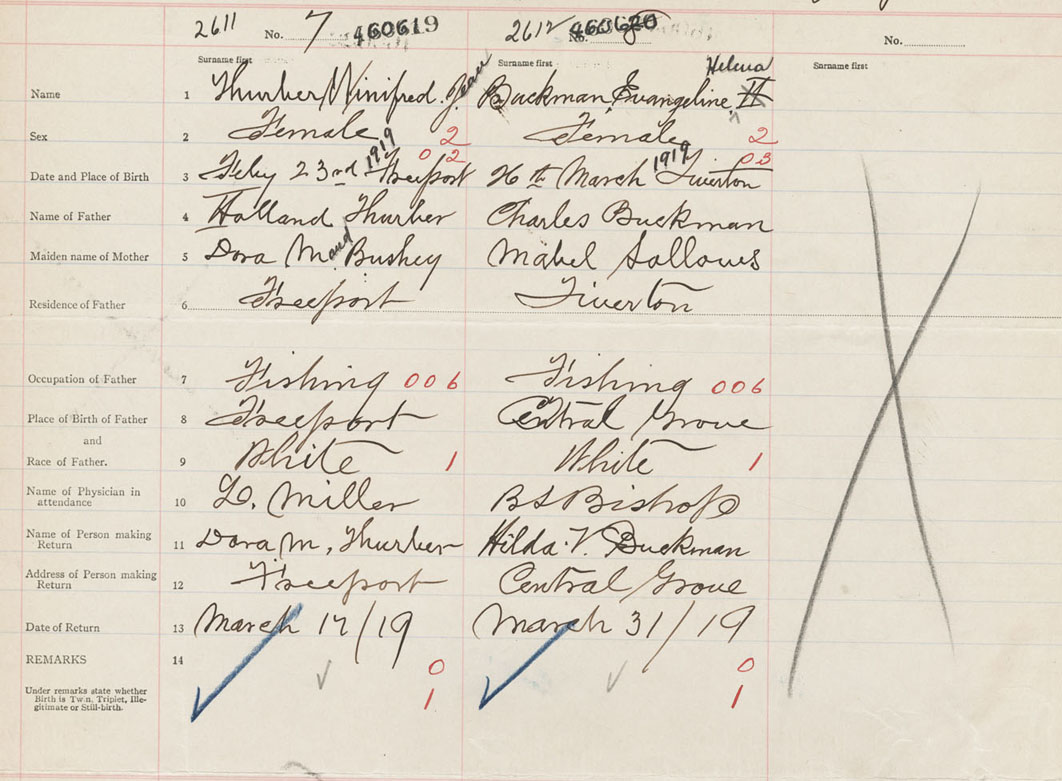 2611 No. 7 460619 2612 No. 8 460620 No.
Surname first Surname first Surname first
Helena
Name 1 Thurber, Winifred. Jean Buckman, Evangeline, H
Sex 2 Female 2 Female 2
1919 02 1919 03
Date and Place of Birth 3 Feby 23rd Freeport 26th March Tiverton
Name of Father 4 Holland Thurber Charles Buckman
Maiden name of Mother 5 Dora Maud Bushey Mabel Sollows
Residence of Father 6 Freeport Tiverton
Occupation of Father 7 Fishing 006 Fishing 006
Place of Birth of Father 8 Freeport Central Grove
and
Race of Father. 9 White 1 White 1
Name of Physician in
attendance 10 L. Miller B S Bishop
Name of Person making
Return 11 Dora M. Thurber Hilda. V. Buckman
Address of Person making
Return 12 Freeport Central Grove
Date of Return 13 March 17/19 March 31/19
REMARKS 14 0 0
Under remarks state whether
Birth is Twin, Triplet, Ille-
gitimate or Still-birth. 1 1